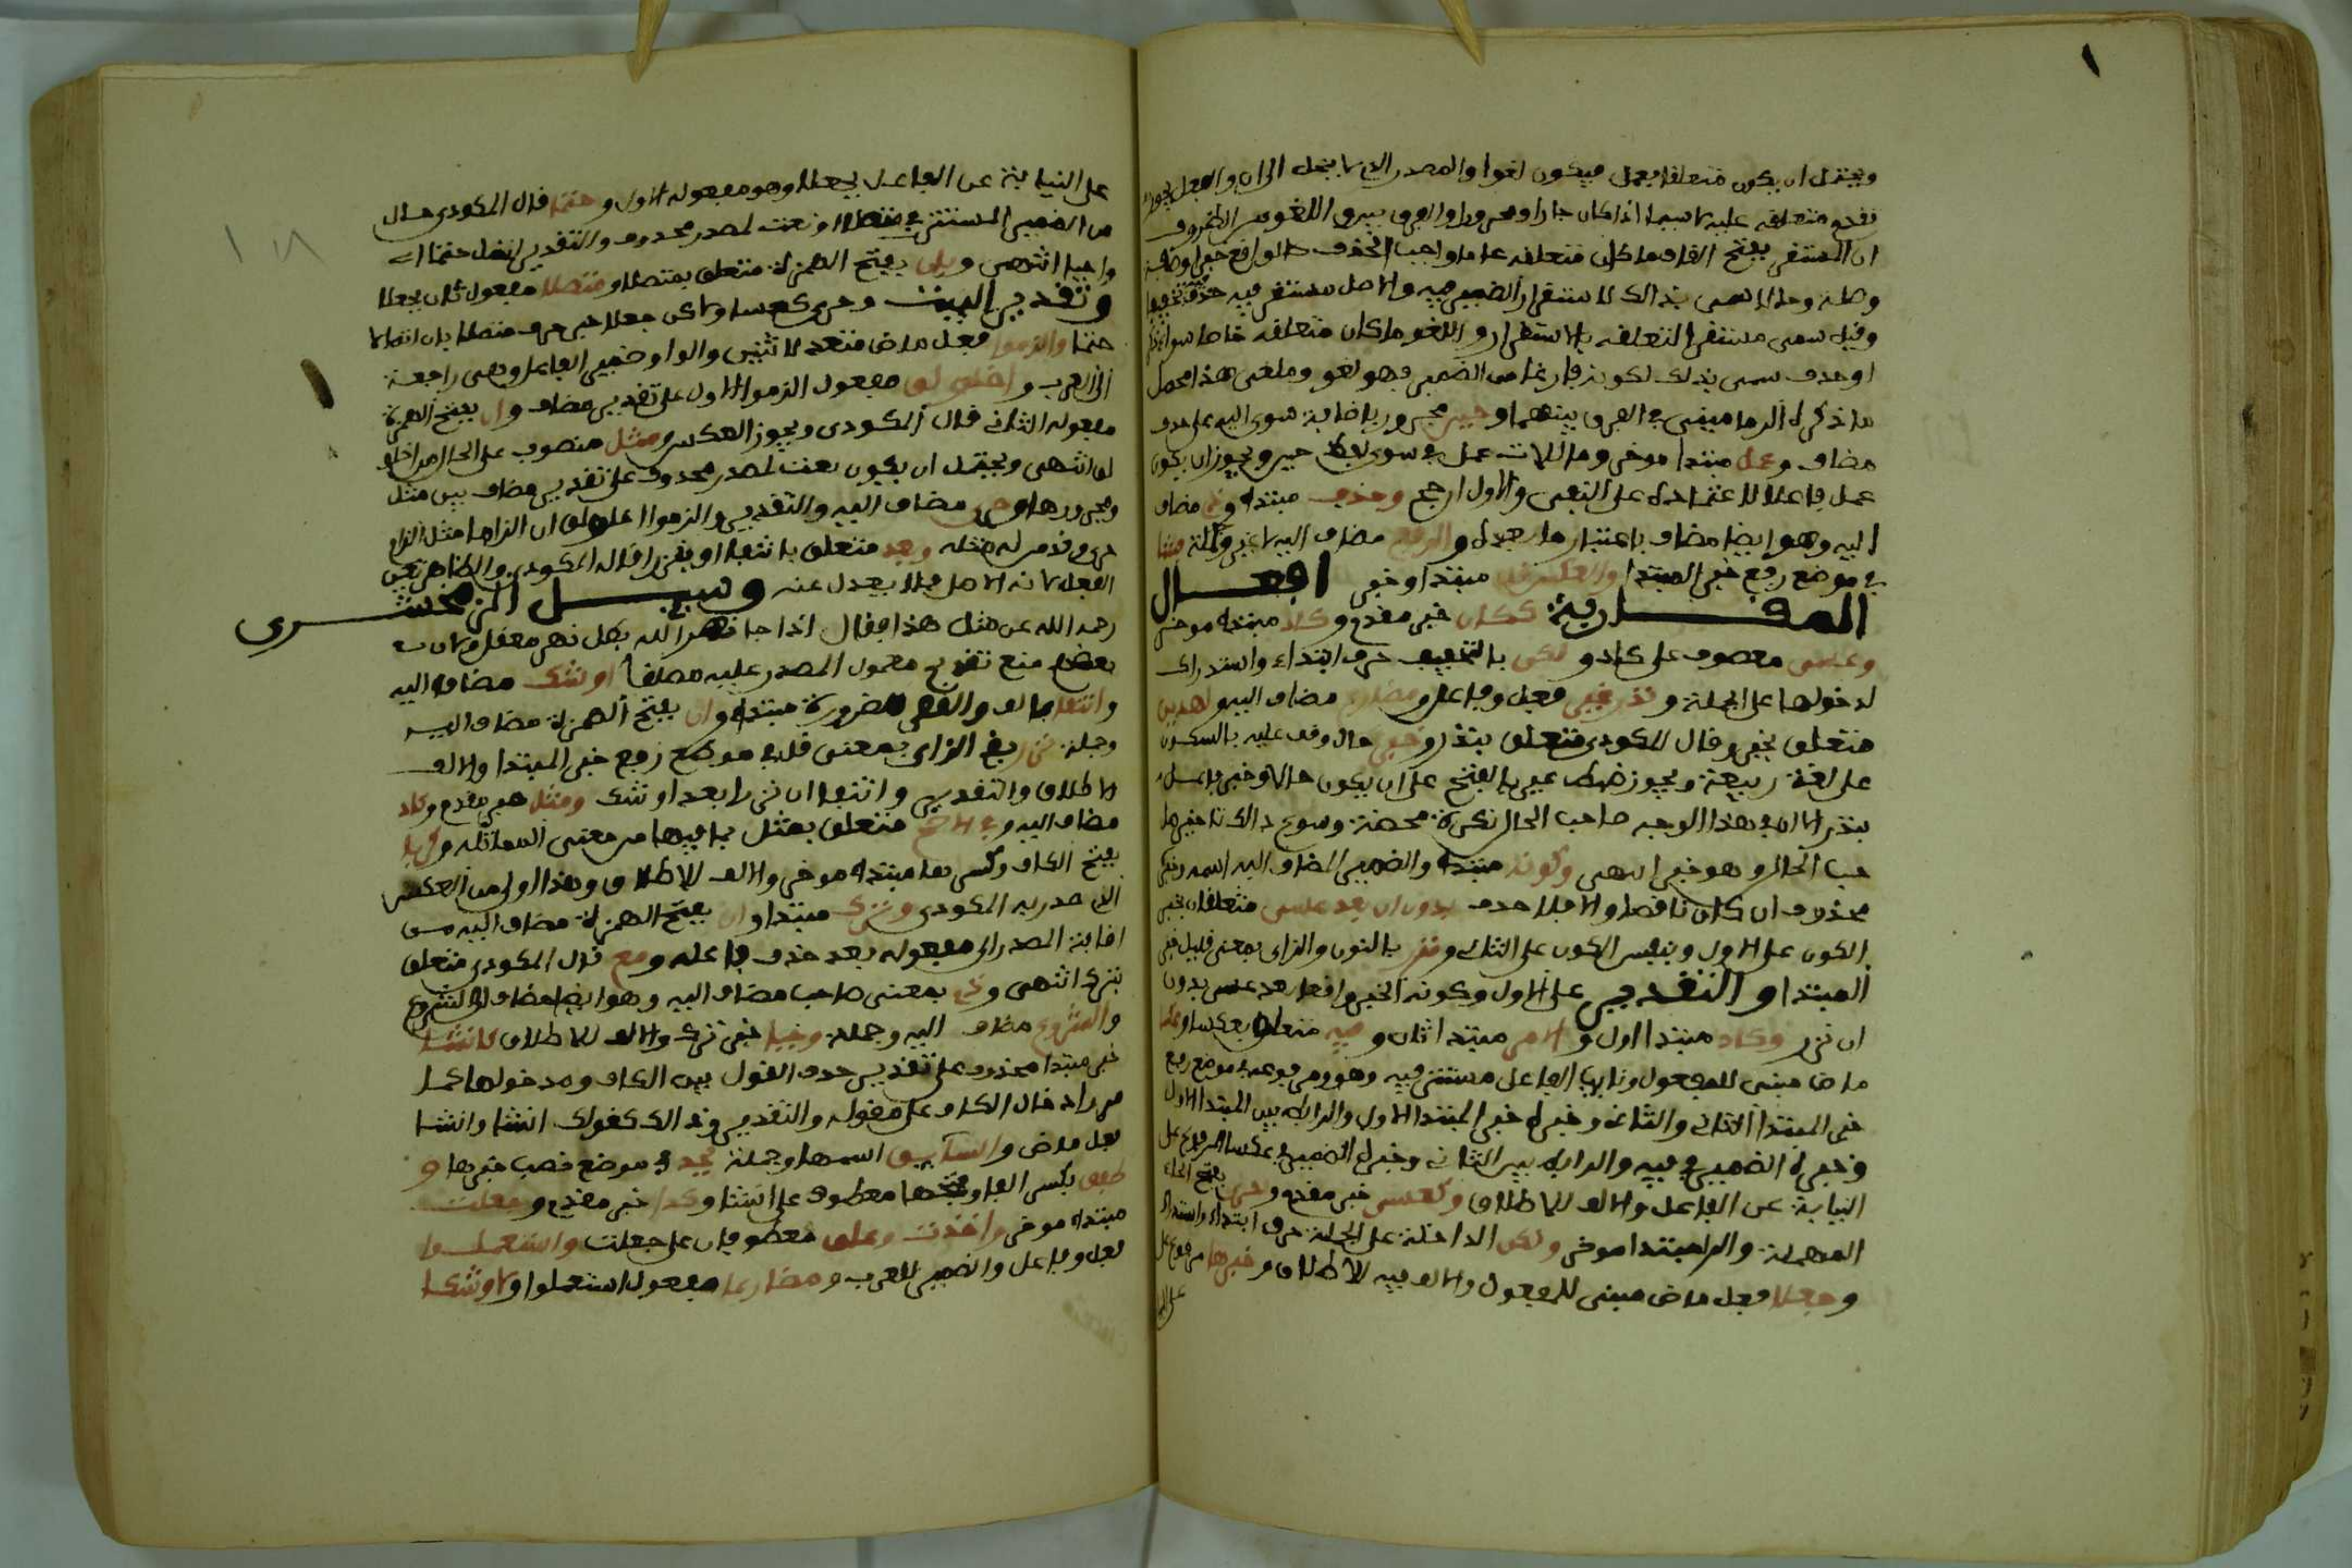 ويحتمل ان يكون متعلقا بعمل فيكون لغوا والمصدر الذي لا ينحل الى ان والفعل يجوز
تقدم متعلقه عليه لا سيما اذا كان جارا ومجرورا والفرق بين اللغو من الظروف
ان المستقر بفتح القاف ما كان متعلقه عاما واجب الحذف كالواقع خبرا وصفة
وصلة وحالا سمى بذالك لاستقرار الضمير فيه والاصل مستقر فيه حذف تخفيفا
وقيل سمى مستقرا لتعلقه بالاستقرار واللغو ما كان متعلقه خاصا سواء ذكر
او حذف سمى بذلك لكونه فارغا من الضمير فهو لغو وملغى هذا محصل
ما ذكره الدماميني في الفرق بينهما وخبر مجرور باضافة سوى اليه على حذف
مضاف وعمل مبتدا موخر وما للات عمل في سوى لفظ حين ويجوز ان يكون
عمل فاعلا لاعتماده على النفى والاول ارجح وحذف مبتداء وذي مضاف
اليه وهو ايضا مضاف باعتبار ما بعده والرفع مضاف اليه لا غير وجملة فشا
في موضع رفع خبر المبتدا والعكس قل مبتدا وخبر افعال
المقاربة ككان خبر مقدم وكاد مبتداء موخر
وعسى معطوف على كاد ولكن بالتخفيف حرف ابتداء واستدراك
لدخولها على الجملة وندر غير فعل وفاعل ومضارع مضاف اليه ولهذين
متعلق بخبر وقال المكودي متعلق بندر وخبر حال وقف عليه بالسكون
على لغة ربيعة ويجوز ضبط غير بالفتح على ان يكون حالا وخبر فاعل
بندر الا ان في هذا الوجه صاحب الحال نكرة محضة وسوغ ذالك تاخيرها
حب الحال وهو خبر انتهى وكونه مبتداء والضمير المضاف اليه اسمه وخبره
محذوف ان كان ناقصا والا فلا حذف بدون ان بعد عسى متعلقان بخبر
الكون على الاول وبنفس الكون على الثاني ونزر بالنون والزاى بمعنى قليل خبر
المبتدا والتقدير على الاول وكونه الخبر واقعا بعد عسى بدون
ان نزر وكاد مبتدا اول والامر مبتدا ثان وفيه متعلق بعكسا وعكسا
ماض مبنى للمفعول ونايب الفاعل مستتر فيه وهو ومرفوعه في موضع رفع
خبر المبتدا الثاني والثاني وخبره خبر المبتدا الاول والرابط بين المبتدا الاول
وخبره الضمير في فيه والرابط بين الثاني وخبره الضمير في عكسا المرفوع على
النيابة عن الفاعل والالف للاطلاق وكعسى خبر مقدم وحرى بفتح الحاء
المهملة والراء مبتدا موخر ولكن الداخلة على الجملة حرف ابتداء واستدراك
وجعلا فعل ماض مبنى للمفعول والالف فيه للاطلاق وخبرها مرفوع على
على النيابة عن الفاعل بجعلا وهو مفعوله الاول وحتما قال المكودي حال
من الضمير المستتر في متصلا او نعت لمصدر محذوف والتقدير اتصل حتما اى
واجبا انتهى وبان بفتح الهمزة متعلق بمتصلا ومتصلا مفعول ثان بجعلا
وتقدير البيت وحرى كعسى ولاكن جعلا خبر حرى متصلا بان اتصالا
حتما والزموا فعل ماض متعد لاثنين والواو ضمير الفاعل وهى راجعة
الى العرب واخلولق مفعول الزموا الاول على تقدير مضاف وان بفتح الهمزة
مفعوله الثاني قال المكودي ويجوز العكس ومثل منصوب على الحال من اخلو
لق انتهى ويحتمل ان يكون نعت لمصدر محذوف على تقدير مضاف بين مثل
ومجرورها وحرى مضاف اليه والتقدير والزموا اخلولق ان الزاما مثل الزام
حرى وقدمر له مثله وبعد متعلق بانتفا او بنزرا قاله المكودي والظاهر تعين
الفعل لانه الاصل فلا يعدل عنه وسيل الزمخشرى
رحمه الله عن مثل هذا فقال اذا جا نهر الله بطل نهر معقل ولان
بعضهم منع تقدم معمول المصدر عليه مطلقا اوشك مضاف اليه
وانتفا مبتداء وان بفتح الهمزة مضاف اليه
وجملة نزرا بضم الزاى بمعنى قل في موضع رفع خبر المبتدا والالف
للاطلاق والتقدير وانتفا ان نزرا بعد اوشك ومثل خبر مقدم وكاد
مضاف اليه وفي الاصح متعلق بمثل بما فيها من معنى المماثلة وكربا
بفتح الكاف وكسرها مبتداء موخر والالف للاطلاق وهذا اولى من العكس
الذي صدر به المكودي وترك مبتدا وان بفتح الهمزة مضاف اليه من
اضافة المصدر الى مفعوله بعد حذف فاعله ومع قال المكودي متعلق
بترك انتهى وذي بمعنى صاحب مضاف اليه وهو ايضا مضاف للشروع
والشروع مضاف اليه وجملة وجبا خبر ترك والالف للاطلاق كانشا
خبر مبتدا محذوف على تقدير حذف القول بين الكاف ومدخولها كما
مر اد خال الكاف على مقوله والتقدير وذالك كقولك انشا وانشا
فعل ماض والسايق اسمها وجملة يحدو في موضع نصب خبرها و
طفق بكسر الفا وفتحها معطوف على انشا وكذا خبر مقدم وجعلت
مبتداء موخر واخذت وعلق معطوفان على جعلت واستعملوا
فعل وفاعل والضمير للعرب ومضارعا مفعول استعملوا ولاوشكا